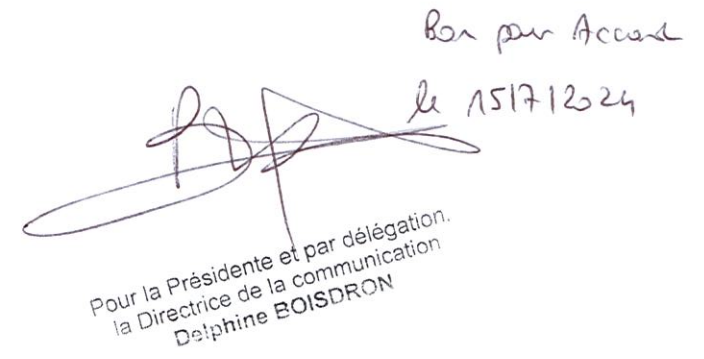 Bon pour Accord
le 15/7/2024
Pour la Présidente et par délégation,
la Directrice de la communication
Delphine BOISDRON